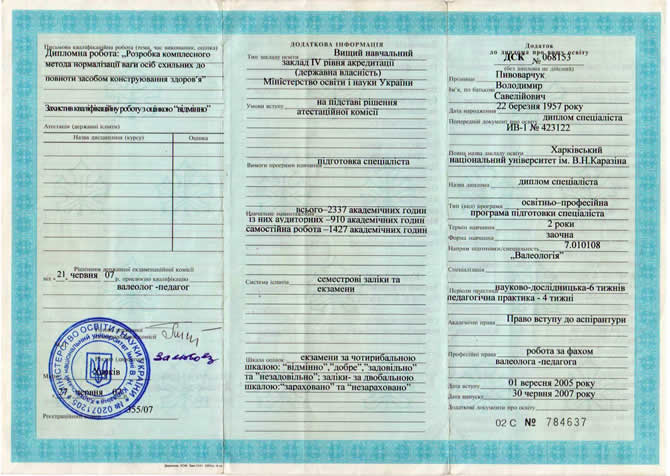 Письмова кваліфікаційна робота (тема, час виконання, оцінка)
Дипломна робота: „Розробка комплексного
метода нормалізації ваги осіб схильних до
повноти засобом конструювання здоров'я”
Захистив кваліфікаційну роботу з оцінкою "відмінно"
Атестація (державні іспити)
Назва дисципліни (курсу)
Оцінка
Рішенням державної екзаменаційної комісії
від „21„ червня 07 р. присвоєно кваліфікацію
валеолог -педагог
Харків
червня
355/07
МІНІСТЕРСТВО ОСВІТИ І НАУКИ УКРАЇНИ
№ 02071205
ДОДАТКОВА ІНФОРМАЦІЯ
Тип закладу освіти
Вищий навчальний
заклад IV рівня акредитації
(державна власність)
Міністерство освіти і науки України
Умови вступу
на підставі рішення
атестаційної комісії
Вимоги програми навчання
підготовка спеціаліста
Навчальне навантаження
всього–2337 академічних годин
із них аудиторних –910 академічних годин
самостійна робота –1427 академічних годин
Система іспитів
семестрові заліки та
екзамени
Шкала оцінок
екзамени за чотирибальною
шкалою:"відмінно","добре","задовільно"
та "незадовільно"; заліки- за двобальною
шкалою:"зараховано" та "незараховано"
Додаток
до диплома про вищу освіту
ДСК № 068153
(без диплома не дійсний)
Прізвище
Пивоварчук
Ім'я, по батькові
Володимир
Савелійович
Дата народження
22 березня 1957 року
Попередній документ про освіту
диплом спеціаліста
ИВ-І № 423122
Повна назва закладу освіти
Харківський
національний університет ім. В.Н.Каразіна
Назва диплома
диплом спеціаліста
Тип (вид) програми
освітньо–професійна
програма підготовки спеціаліста
Термін навчання
2 роки
Форма навчання
заочна
Напрям підготовки/спеціальність
7.010108
„Валеологія”
Спеціалізація
Періоди практик
науково-дослідницька-6 тижнів
педагогічна практика - 4 тижні
Академічні права
Право вступу до аспірантури
Професійні права
робота за фахом
валеолога-педагога
Дата вступу
01 вересня 2005 року
Дата випуску
30 червня 2007 року
Додаткові документи про освіту
02 С № 784637